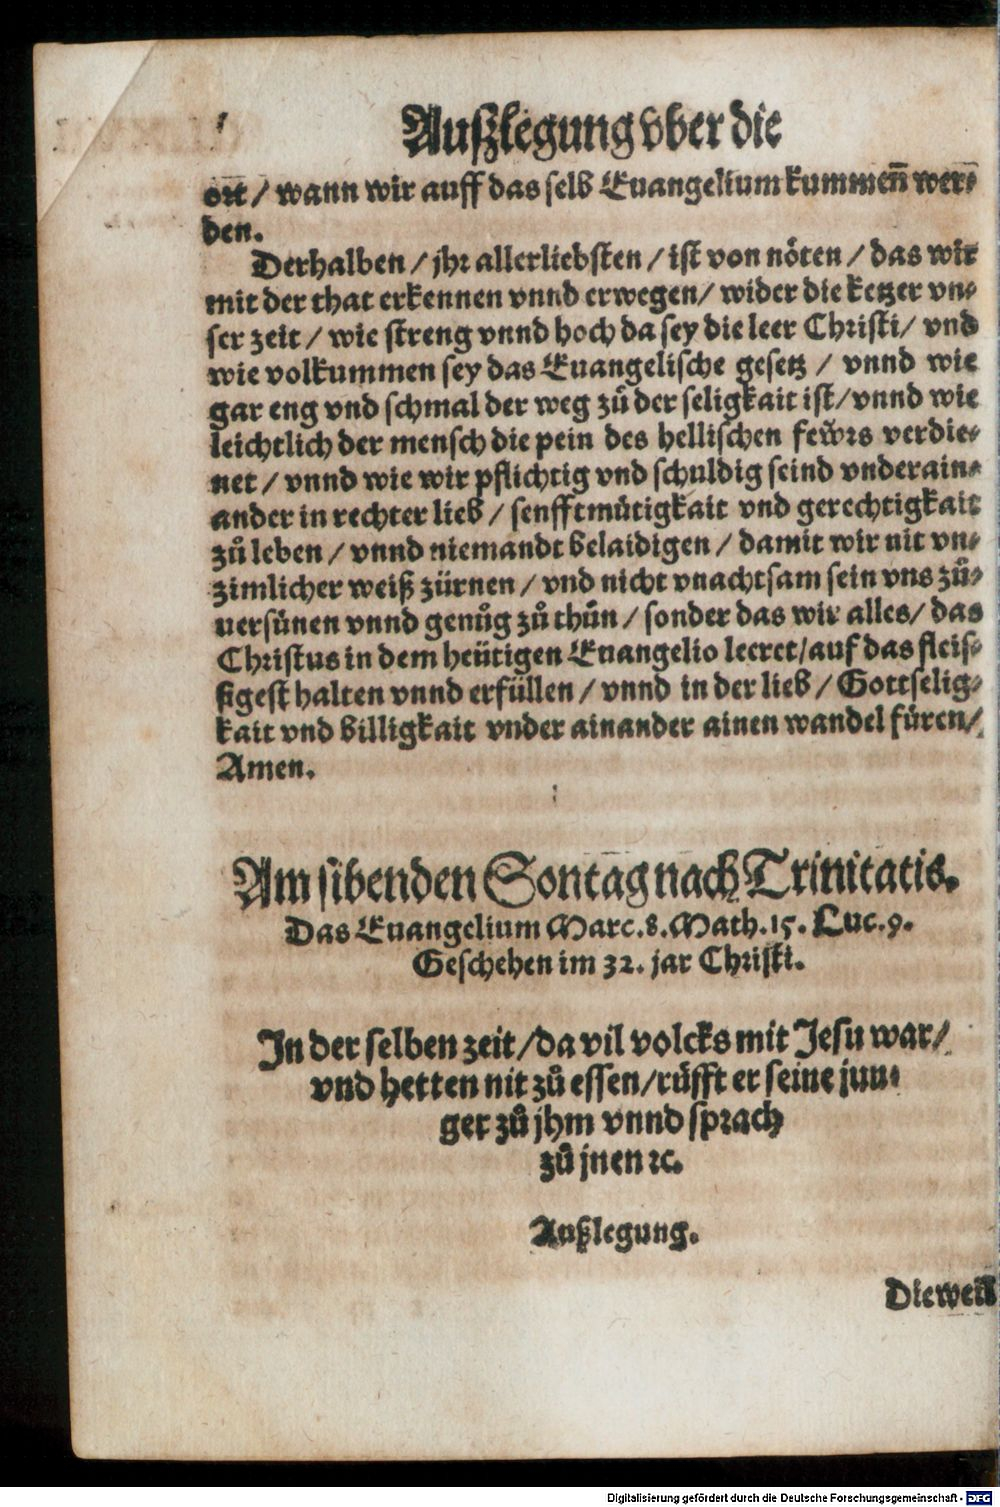 Außlegung vber die
ort / wann wir auff das selb Euangelium kummeñ wer⸗
den.
Derhalben / jhr allerliebsten / ist von nöten / das wir
mit der that erkennen vnnd erwegen / wider die ketzer vn⸗
ser zeit / wie streng vnnd hoch da sey die leer Christi / vnd
wie volkummen sey das Euangelische gesetz / vnnd wie
gar eng vnd schmal der weg zů der seligkait ist / vnnd wie
leichtlich der mensch die pein des hellischen fewrs verdie⸗
net / vnnd wie wir pflichtig vnd schuldig seind vnderain⸗
ander in rechter lieb / senfftmütigkait vnd gerechtigkait
zů leben / vnnd niemandt belaidigen / damit wir nit vn⸗
zimlicher weiß zürnen / vnd nicht vnachtsam sein vns zů⸗
uersünen vnnd genůg zů thůn / sonder das wir alles / das
Christus in dem heütigen Euangelio leeret / auf das fleis⸗
sigest halten vnnd erfüllen / vnnd in der lieb / Gottselig⸗
kait vnd billigkait vnder ainander ainen wandel füren /
Amen.
Am sibenden Sontag nach Trinitatis.
Das Euangelium Marc. 8. Math. 15. Luc. 9.
Geschehen im 32. jar Christi.
In der selben zeit / da vil volcks mit Jesu war /
vnd hetten nit zů essen / růfft er seine jun⸗
ger zů jhm vnnd sprach
zů jnen ꝛc.
Außlegung.
Dieweil
Digitalisierung gefördert durch die Deutsche Forschungsgemeinschaft - DFG